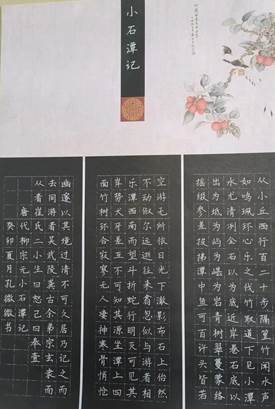 小石潭记
从小丘西行百二十步隔篁竹闻水声
如鸣珮环心乐之伐竹取道下见小潭
水尤清冽全石以为底近岸卷石底以
出为坻为屿为嵁为岩青树翠蔓蒙络
摇缀参差披拂潭中鱼可百许头皆若
空游无所依日光下澈影布石上佁然
不动俶尔远逝往来翕忽似与游者相
乐潭西南而望斗折蛇行明灭可见其
岸势犬牙差互不可知其源坐潭上四
面竹树环合寂寥无人凄神寒骨悄怆
幽邃以其境过清不可久居乃记之而
去同游者吴武陵龚古余弟宗玄隶而
从者崔氏二小生曰恕己曰奉壹
唐代柳宗元小石潭记
癸卯夏月孔微微书